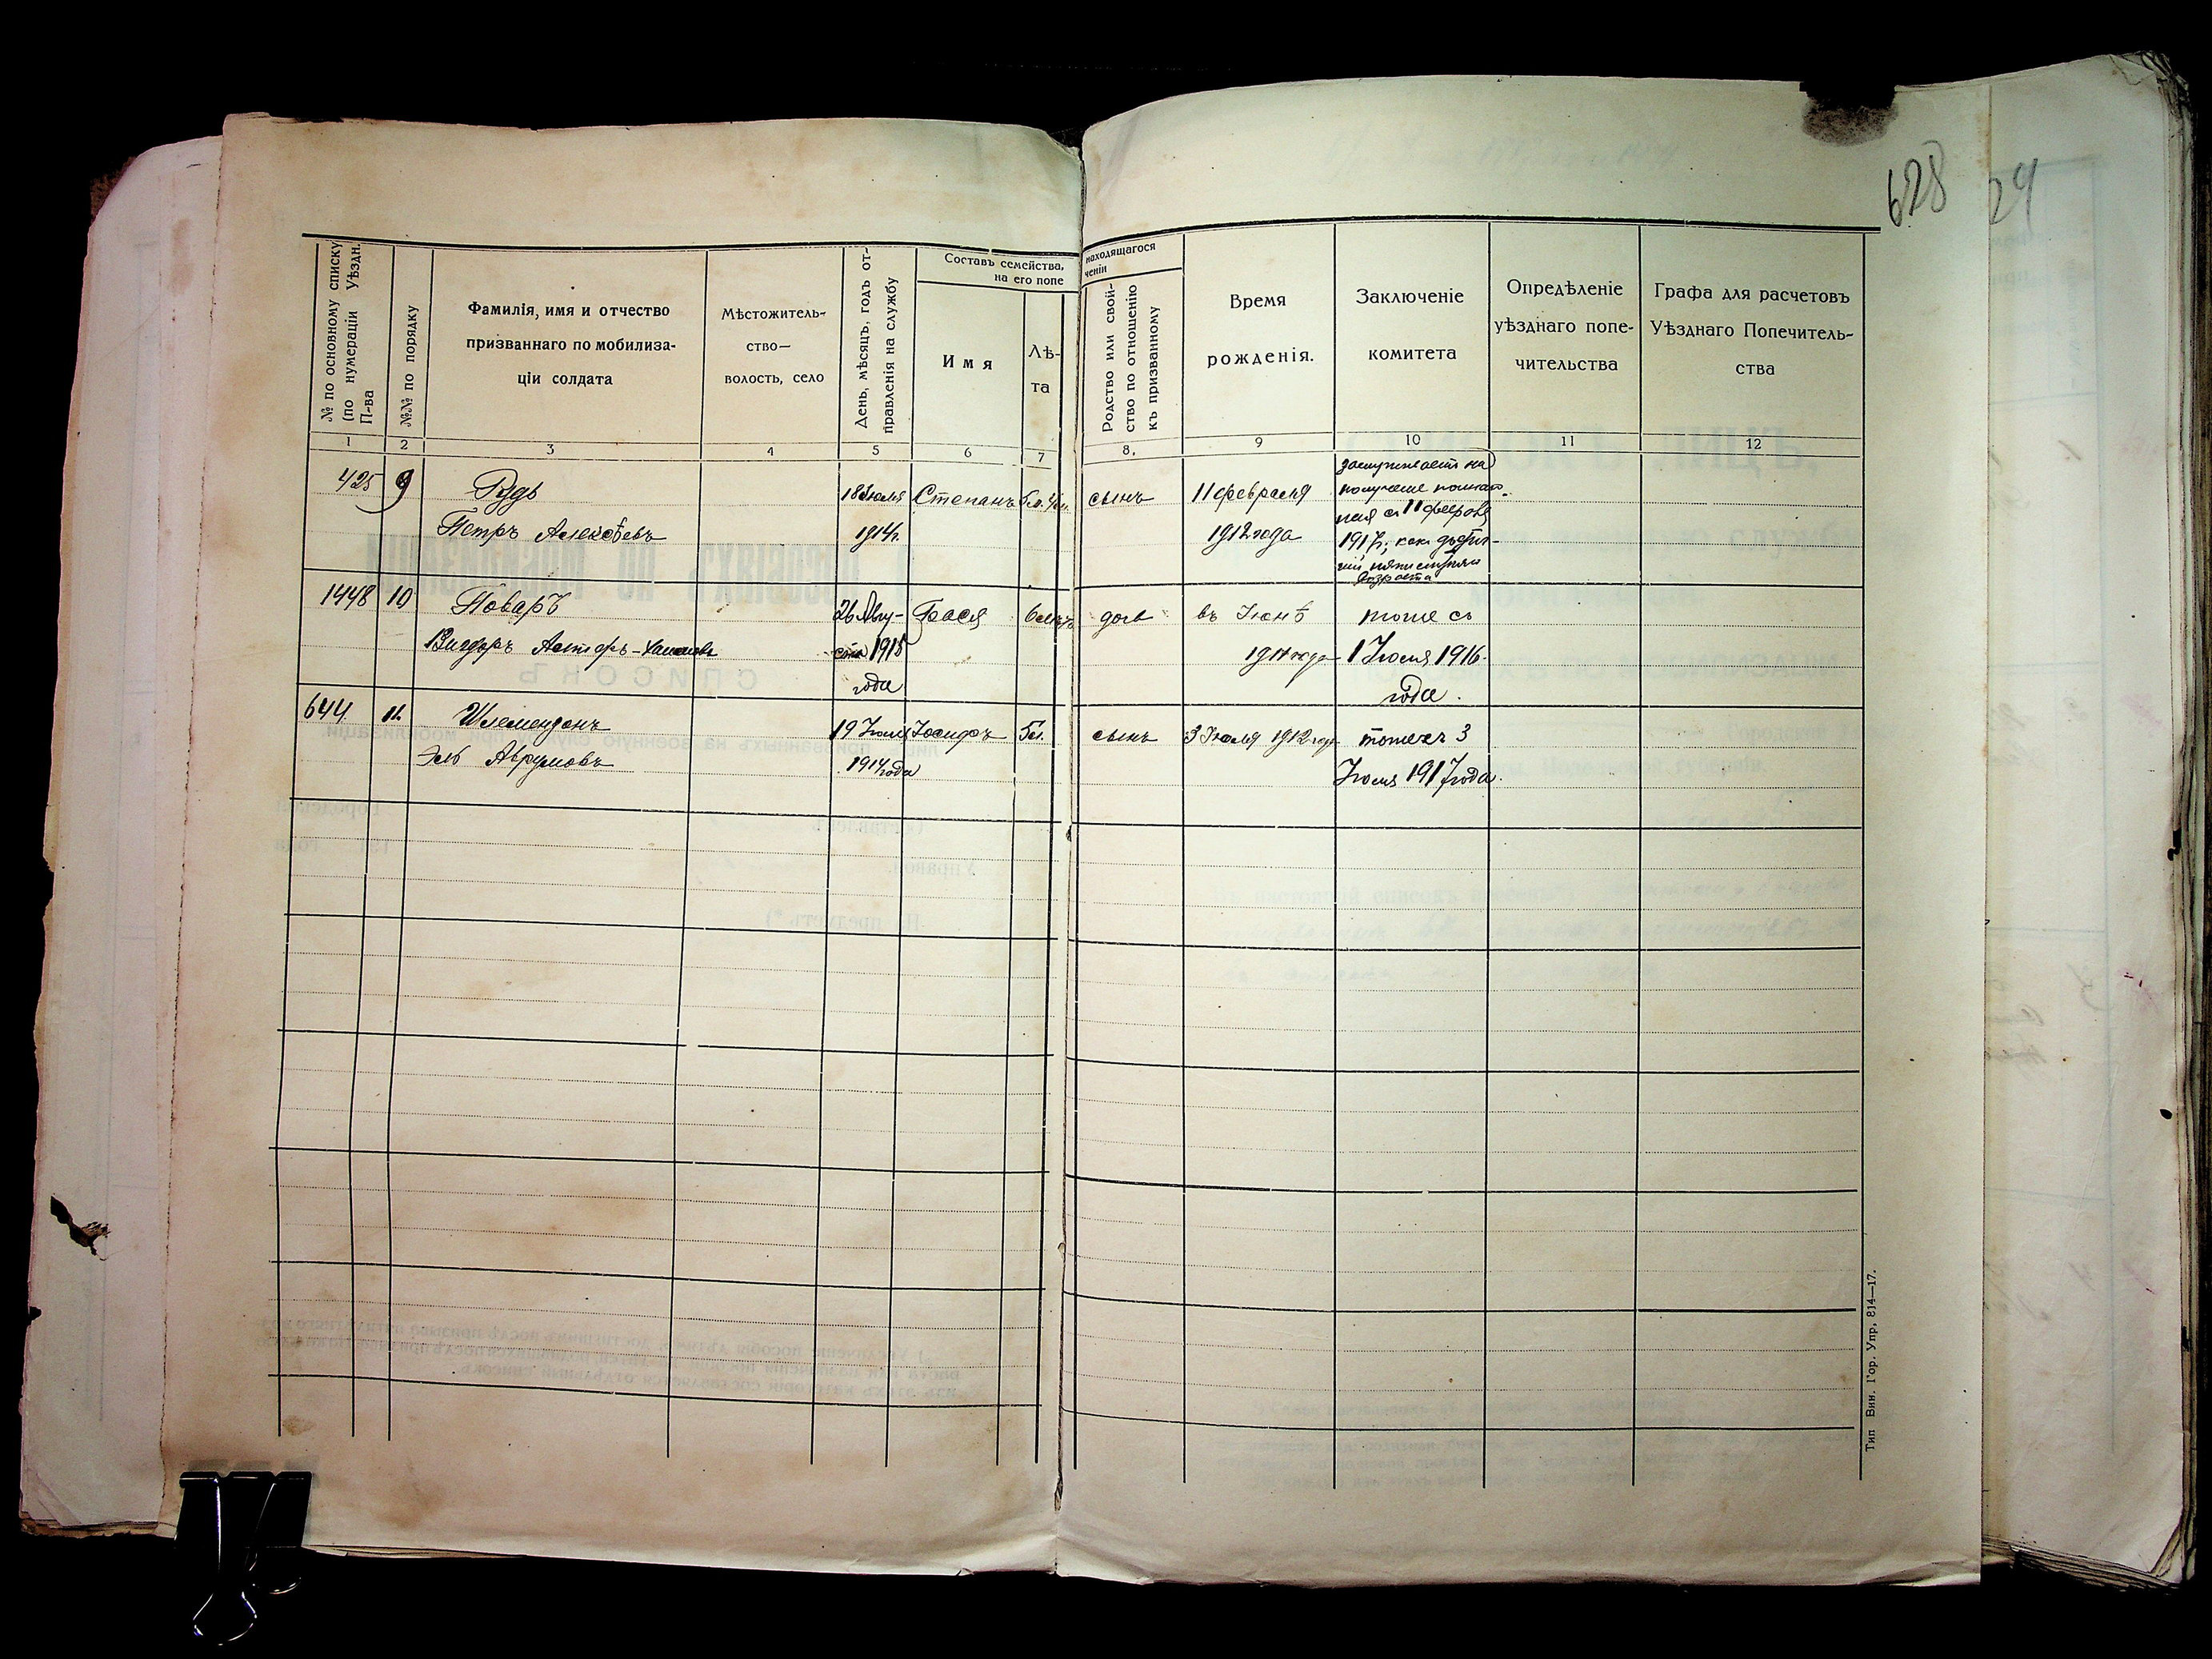 628
29
№ по основному списку (по нумераціи Уѣздн. П-ва
№№ по порядку
Фамилія, имя и отчество
призваннаго по мобилиза-
ціи солдата
Мѣстожитель-
ство—
волость, село
День, мѣсяцъ, годъ от-
правленія на службу
Составъ семейства,
на его попе
Имя
Лѣ-
та
находящагося
ченіи
Родство или свой-
ство по отношенію
къ призванному
Время
рожденія.
Заключеніе
комитета
Опредѣленіе
уѣзднаго попе-
чительства
Графа для расчетовъ
Уѣзднаго Попечитель-
ства
1 2 3 4 5 6 7 8, 9 10 11 12
425 9 Рудь 18 Іюля Степанъ сынъ 11 февраля заслуживаетъ на
получение
Петръ Алексѣевъ 1914г. 1912 года 11
1917г; какъ
возраста
1448 10 Поваръ 26 Авгу- Бася доч въ Іюнѣ тоже съ
ста 1915 года 1 Іюля 1916
года года.
644. 11. Шлемензонъ 19 Іюля Іосифъ 5л. сынъ 3 Іюля 1912 года тоже съ 3
Эль Аврумовъ 1914 года Іюля 1917 года.
Тип Вин. Гор. Упр, 814—17.